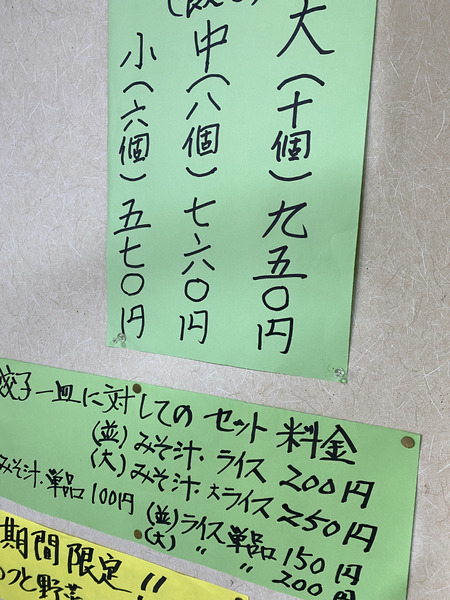 大(十個)九五〇円
中(八個)七六〇円
小(六個)五七〇円
餃子一皿に対してのセット料金
(並)みそ汁・ライス 200円
(大)みそ汁・大ライス 250円
みそ汁・単品100円
(並)ライス単品 150円
(大) 〃 〃 200円
期間限定!!